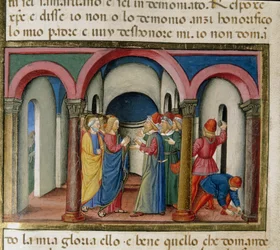 tu sei samaritano e sei indemoniato. Respoxe
xpe e disse io non o lo demonio anzi honorifico
lo mio padre e vuy desonore mi. io non doma
do la mia gloria ello.e bene quello che domando